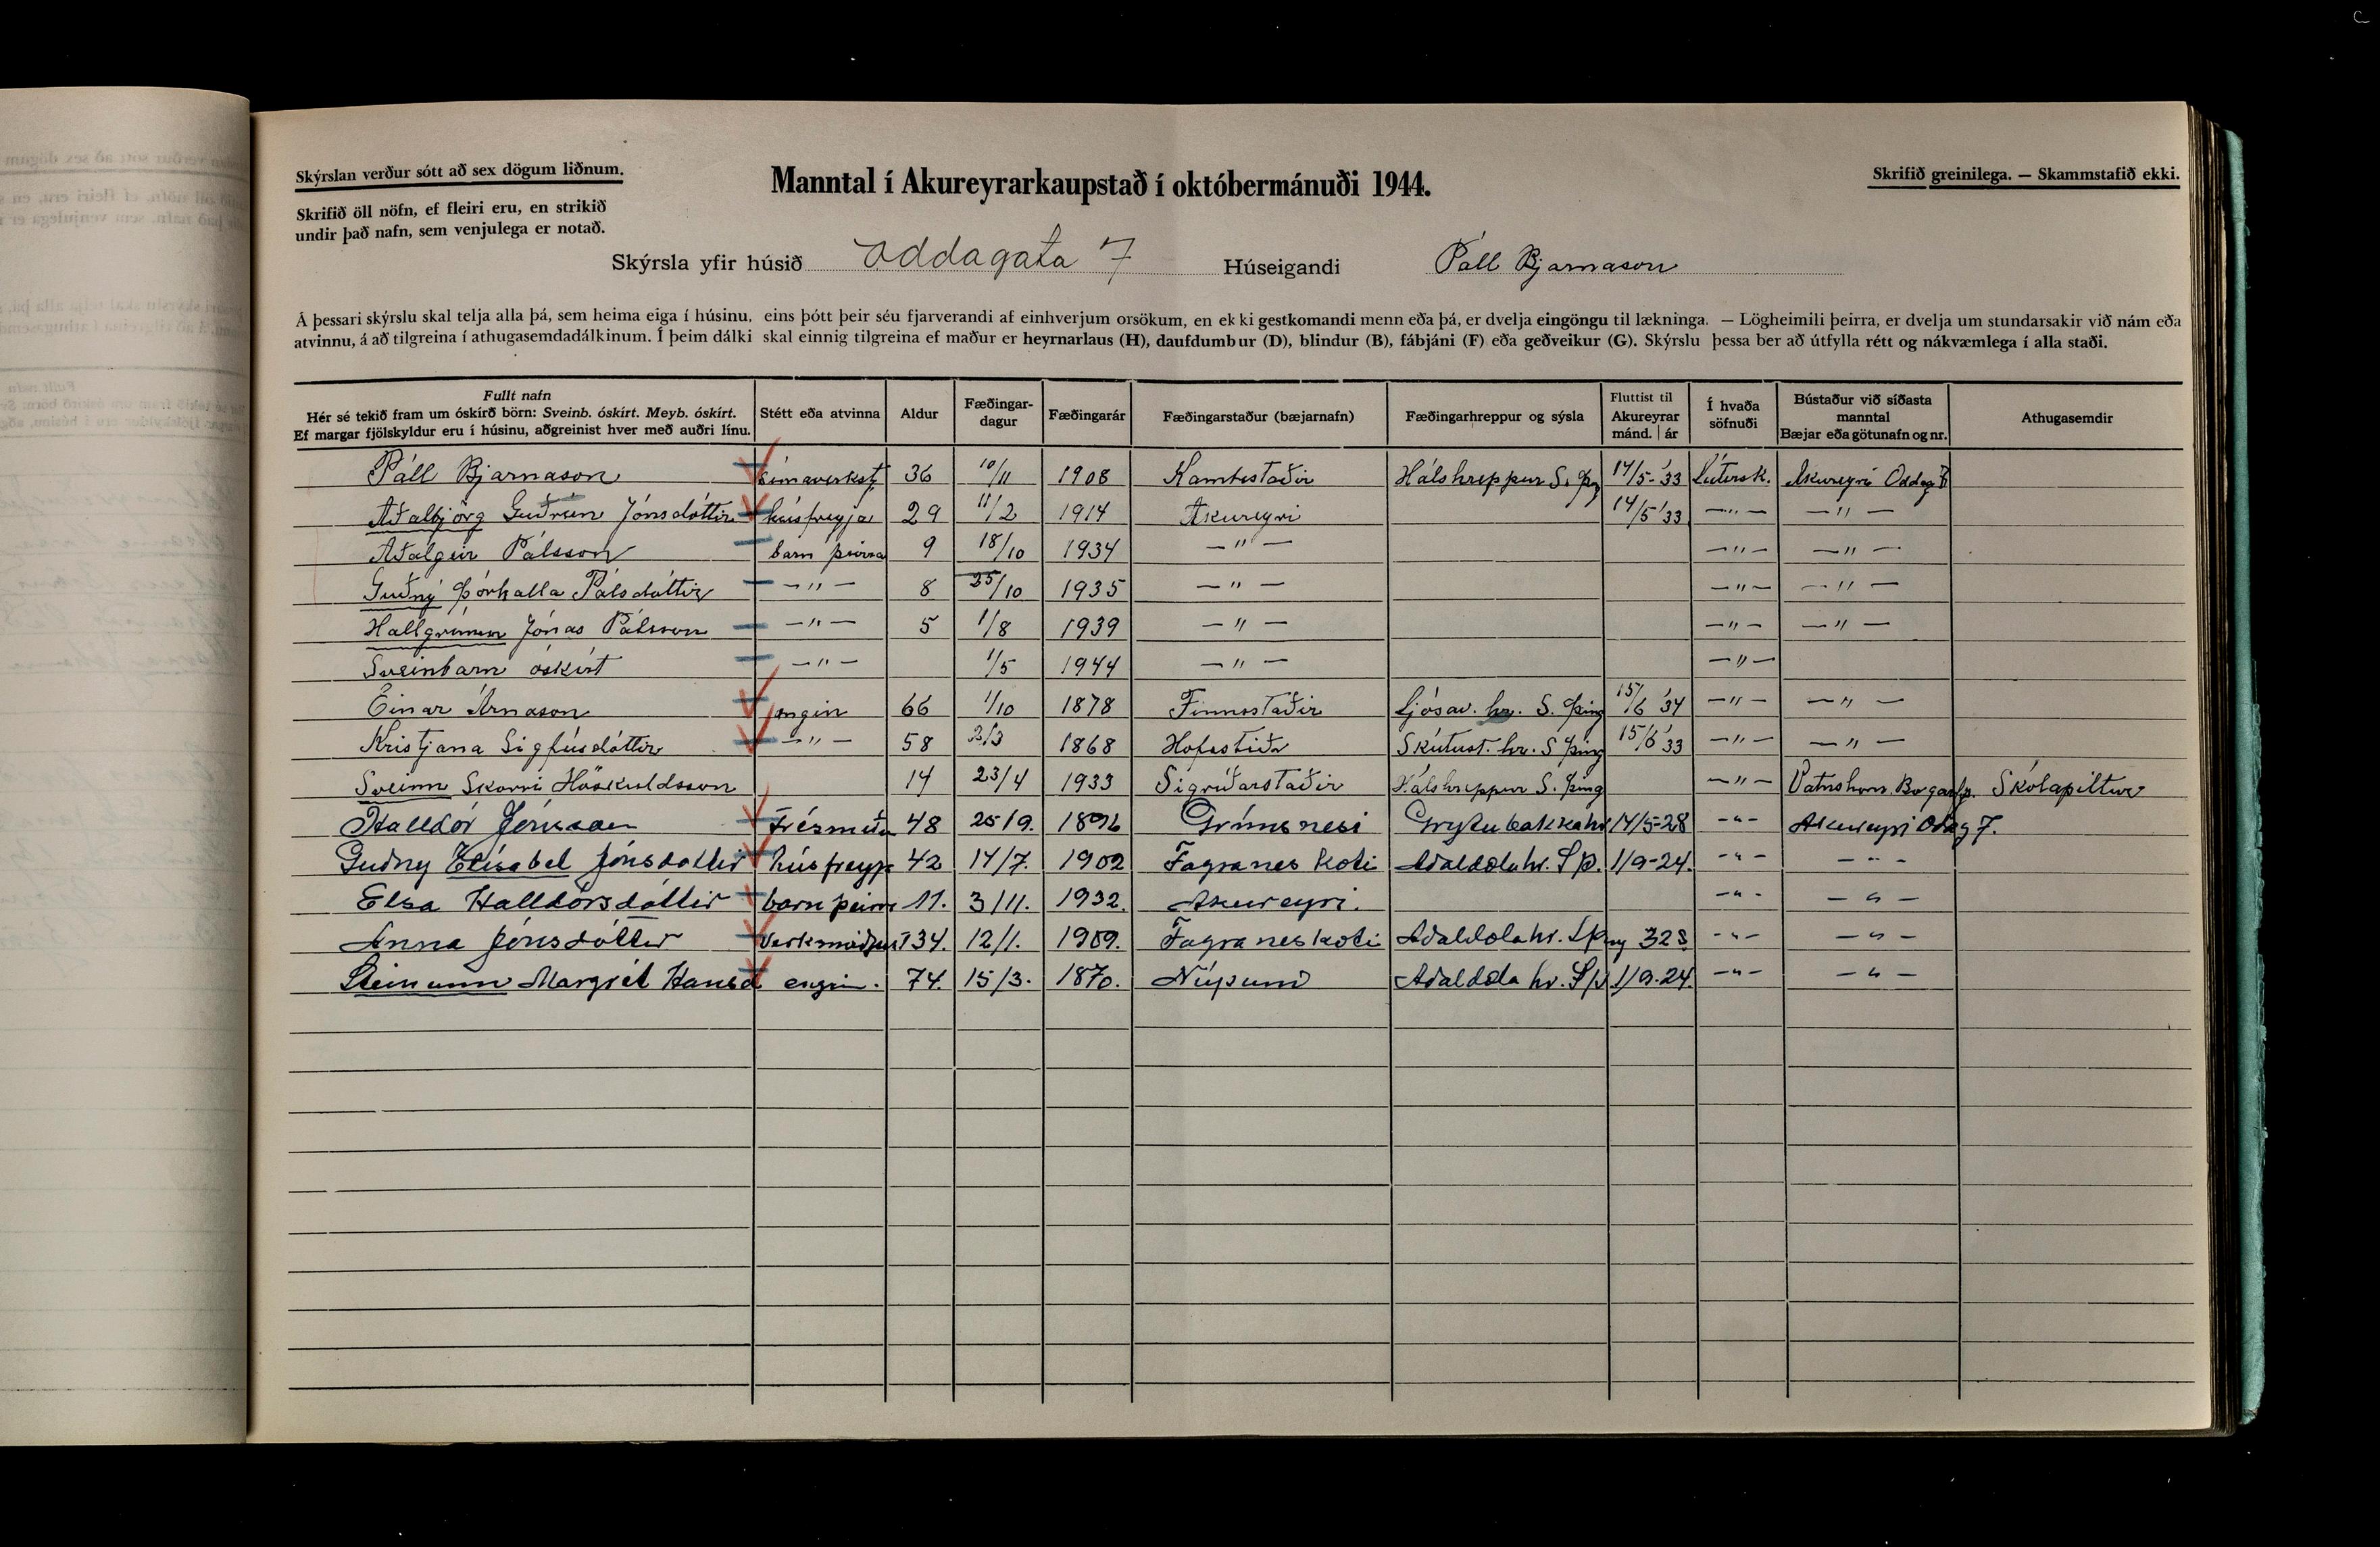 Skýrslan verður sótt að sex dögum liðnum.
Skrifið öll nöfn, ef fleiri eru, en strikið
undir það nafn, sem venjulega er notað.
Manntal í Akureyrarkaupstað í októbermánuði 1944.
Skrifið greinilega. — Skammstafið ekki.
Skýrsla yfir húsið Oddagata 7 Húseigandi Páll Bjarnason
Á þessari skýrslu skal telja alla þá, sem heima eiga í húsinu, eins þótt þeir séu fjarverandi af einhverjum orsökum, en ekki gestkomandi menn eða þá, er dvelja eingöngu til lækninga. — Lögheimili þeirra, er dvelja um stundarsakir við nám eða
atvinnu, á að tilgreina í athugasemdadálkinum. Í þeim dálki skal einnig tilgreina ef maður er heyrnarlaus (H), daufdumbur (D), blindur (B), fábjáni (F) eða geðveikur (G). Skýrslu þessa ber að útfylla rétt og nákvæmlega í alla staði.
Fullt nafn
Hér sé tekið fram um óskírð börn: Sveinb. óskírt. Meyb. óskírt.
Ef margar fjölskyldur eru í húsinu, aðgreinist hver með auðri línu.
Stétt eða atvinna
Aldur
Fæðingar-
dagur
Fæðingarár
Fæðingarstaður (bæjarnafn)
Fæðingarhreppur og sýsla
Fluttist til
Akureyrar
mánd. | ár
Í hvaða
söfnuði
Bústaður við síðasta
manntal
Bæjar eða götunafn og nr.
Athugasemdir
Páll Bjarnason símaverkstj 36 10/11 1908 Kambsstaðir Hálshreppur S. Þing 14/5-'33 Lútersk. Akureyri Oddag 7
Aðalbjörg Guðrún Jónsdóttir húsfreyja 29 11/2 1914 Akureyri 14/5 '33 —"— —"—
Aðalgeir Pálsson barn þeirra 9 18/10 1934 —"— —"— —"—
Guðný Þórhalla Pálsdóttir —"— 8 25/10 1935 —"— —"— —"—
Hallgrímur Jónas Pálsson —"— 5 1/8 1939 —"— —"— —"—
Sveinbarn óskírt —"— 1/5 1944 —"— —"—
Einar Árnason engin 66 1/10 1878 Finnsstaðir Ljósav. hr. S. Þing 15/6 '34 —"— —"—
Kristjana Sigfúsdóttir —"— 58 1868 Hofsstöð Skútust. hr. S Þing 15/6 '33 —"— —"—
Sveinn Skorri Höskuldsson 14 23/4 1933 Sigríðarstaðir Hálshreppur S. Þing —"— Vatnshorn Skólapiltur
Halldór Jónsson Trésmíða 48 25/9. 1896 Grímsnesi Grýtubakkahr 14/5-28 -"- Akureyri Oddag 7.
Guðny Elísabet Jónsdóttir húsfreyja 42 14/7. 1902 Fagranes koti Aðaldælahr. S Þ. 1/9-24. -"- -"-
Elsa Halldórsdóttir barn þeirra 11. 3/11. 1932. Akureyri. -"- -"-
Anna Jónsdóttir 34. 12/1. 1909. Fagraneskoti Aðaldælahr. -"- -"-
Steinunn Margrét Hansd engin. 74. 15/3. 1870. Núpum Aðaldæla hr. S Þ 1/9-24. -"- -"-